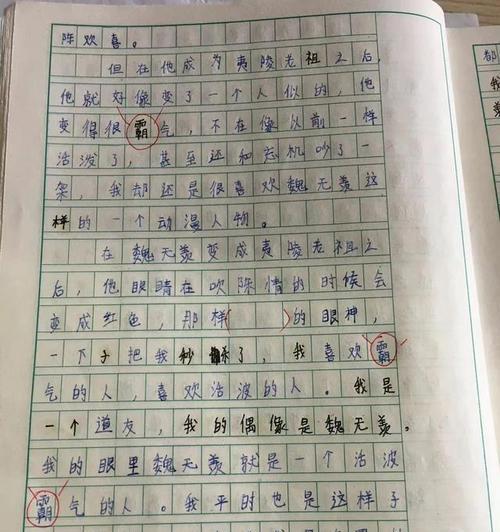 陈欢喜。
但在他成为夷陵老祖之后,
他就好像变了一个人似的,他
变得很霸气,不在像以前一样
活泼了,甚至还和忘机吵了一
架,我却还是很喜欢魏无羡这
样的一个动漫人物。
在魏无羡变成夷陵老祖之
后,他眼睛在吹陈情的时候会
变成红色,那样( )的眼神,
一下子把我秒杀了,我喜欢霸
气的人,喜欢活波的人。我是
一个道友,我的偶像是魏无羡。
我的眼里魏无羡就是一个活波
霸气的人。我平时也是这样子
都
我